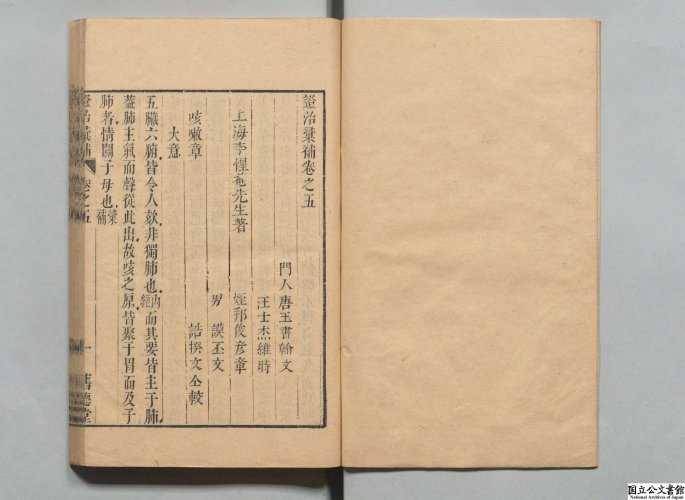 證治彙補卷之五
門人唐玉書翰文
汪士杰維時
上海李惺菴先生著
姪邦俊彥章
男 謨丕文
咳嗽章
誥撰文仝較
大意
五臟六腑皆令人欬非獨肺也內經而其要皆主于肺
蓋肺主氣而聲從此出故咳之原皆聚于胃而及于
肺者情關子母也彙補
證治彙補
卷之五
一
舊德堂
国立公文書館
National Archives of Japan